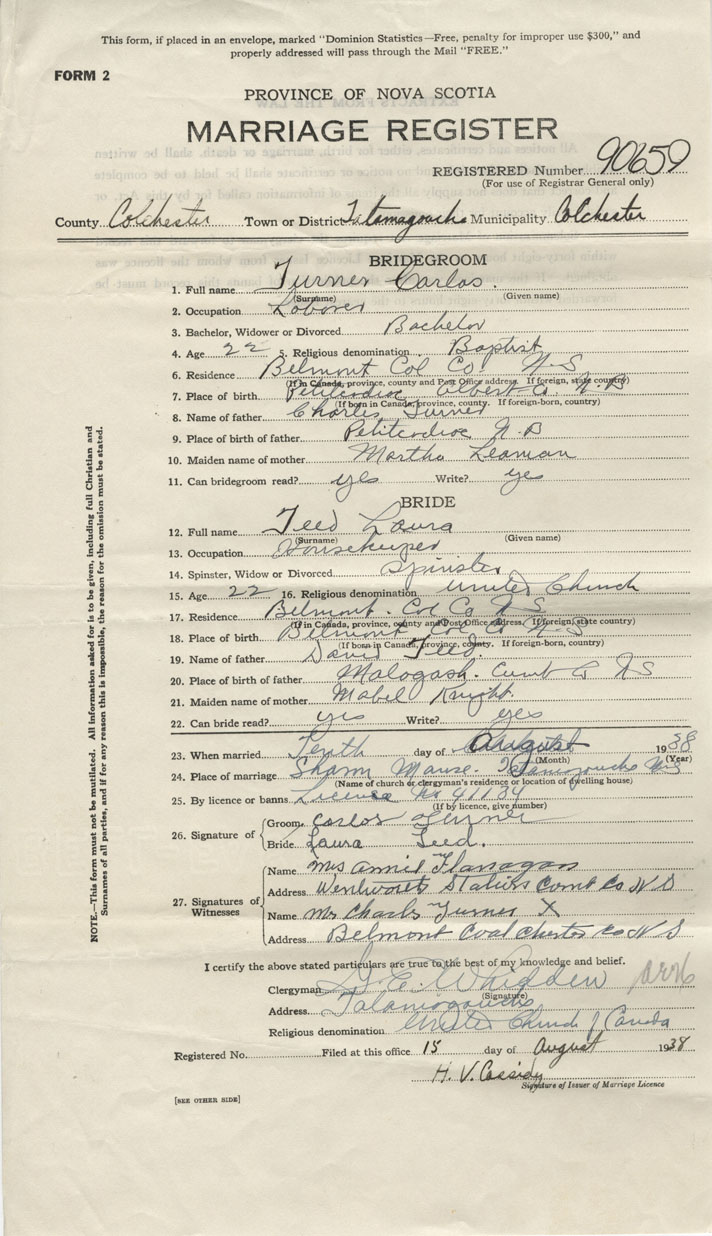 This form, if placed in an envelope, marked "Dominion Statistics—Free, penalty for improper use $300," and
properly addressed will pass through the Mail "FREE."
FORM 2
PROVINCE OF NOVA SCOTIA
MARRIAGE REGISTER
REGISTERED Number 90659
(For use of Registrar General only)
County Colchester Town or District Tatamagouche Municipality Colchester
BRIDEGROOM
1. Full name Turner Carlos.
(Surname) (Given name)
2. Occupation Laborer
3. Bachelor, Widower or Divorced Bachelor
4. Age 22 5. Religious denomination Baptist
6. Residence Belmont Col Co. N-S
(If in Canada, province, county and Post Office address. If foreign, state country)
7. Place of birth Petitcodiac Albert Co. N B
(If born in Canada, province, county. If foreign-born, country)
8. Name of father Charles Turner
9. Place of birth of father Petitcodiac N.B
10. Maiden name of mother Martha Leaman
11. Can bridegroom read? yes Write? yes
BRIDE
12. Full name Teed Laura
(Surname) (Given name)
13. Occupation Housekeeper
14. Spinster, Widow or Divorced Spinster
15. Age 22 16. Religious denomination United Church
17. Residence Belmont. Col Co N S
(If in Canada, province, county and Post Office address. If foreign, state country)
18. Place of birth Belmont Col Co N S
(If born in Canada, province, county. If foreign-born, country)
19. Name of father David Teed.
20. Place of birth of father Malogash. Cumb Co NS
21. Maiden name of mother Mabel Knight.
22. Can bride read? yes Write? yes
23. When married Tenth day of August 1938
(Month) (Year)
24. Place of marriage Manse. Tatamagouche NS
(Name of church or clergyman's residence or location of dwelling house)
25. By licence or banns Licence No 41134
(If by licence, give number)
26. Signature of Groom Carlos Turner
Bride Laura Teed.
27. Signatures of Witnesses
Name Mrs Annie Flanagan
Address Wentworth Station Cumb Co N S
Name Mr Charls Turner X
Address Belmont Coal Chester Co N S
I certify the above stated particulars are true to the best of my knowledge and belief.
Clergyman Whidden
(Signature)
Address Tatamagouche
Religious denomination United Church of Canada
Registered No. Filed at this office 15 day of August 1938
H. V. Cassidy
Signature of Issuer of Marriage Licence
[SEE OTHER SIDE]
NOTE.—This form must not be mutilated. All information asked for is to be given, including full Christian and
Surnames of all parties, and if for any reason this is impossible, the reason for the omission must be stated.